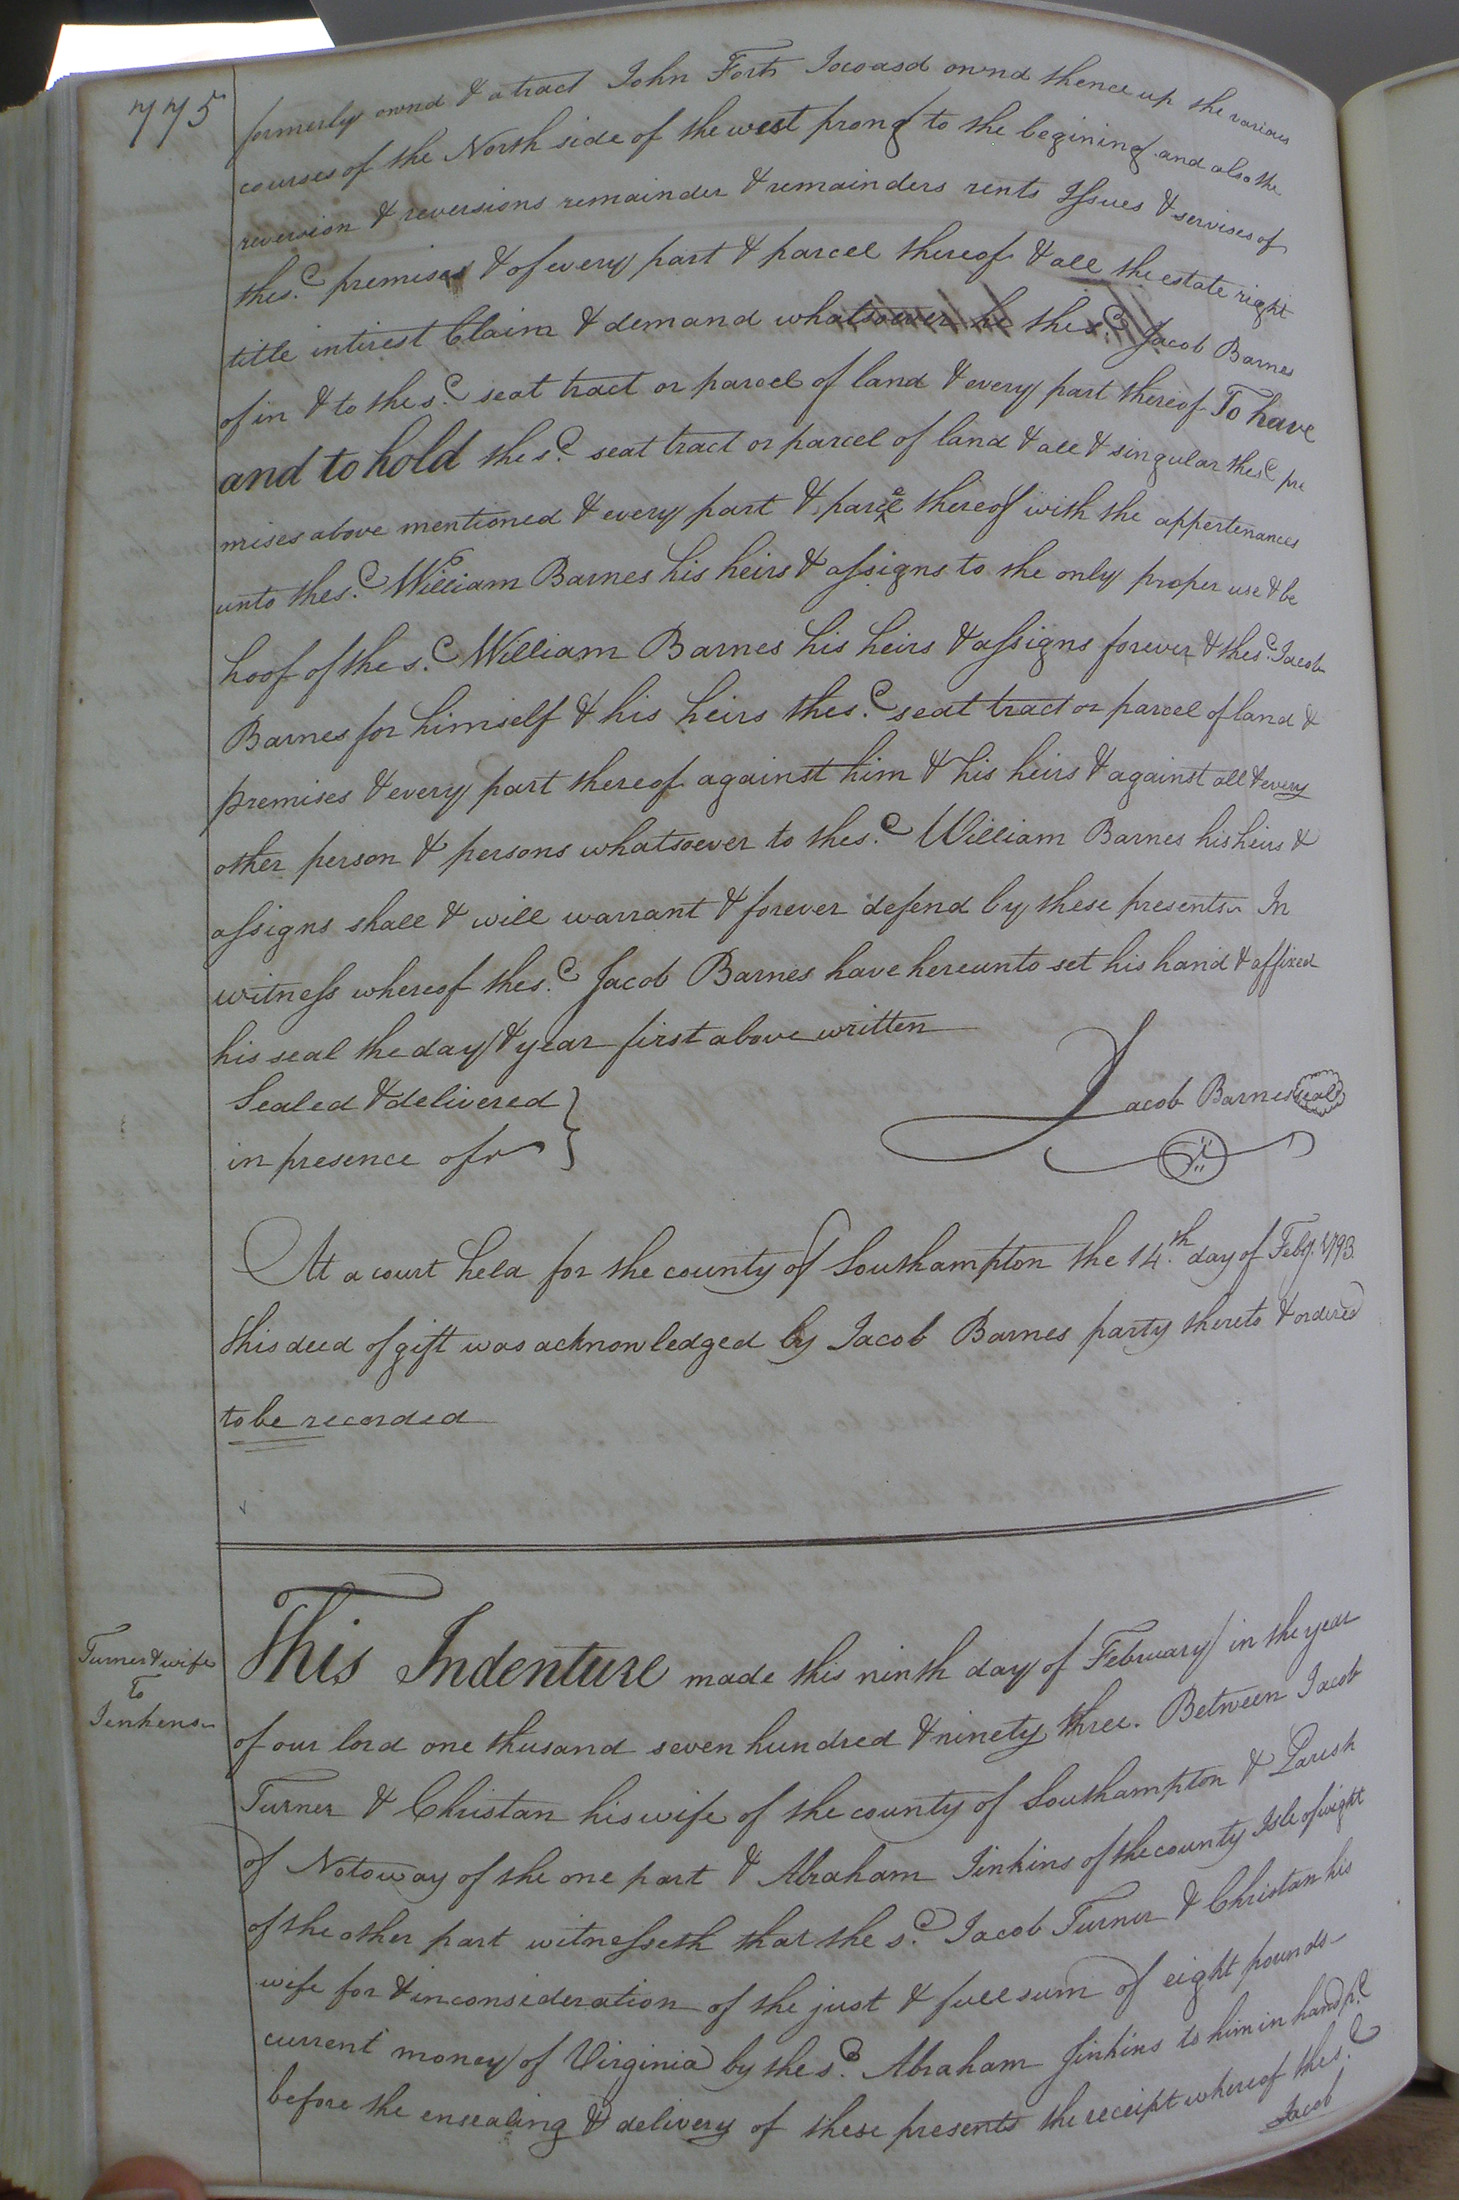 775
formerly ownd & a tract John Forts ownd thence up the various
courses of the North side of the west prong to the begining and also the
revervion & reversions remainder & remainders rents Issues & servises of
the s.d premises & of every part & parcel thereof & all the estate right
title intirest Claim & demand whatsoever he the s.d Jacob Barnes
of in & to the s.d seat tract or parcel of land & every part thereof To have
and to hold the s.d seat tract or parcel of land & all & singular the s.d pre
mises above mentioned & every part & parcel thereof with the appertenances
unto the s.d William Barnes his heirs & assigns to the only proper use & be
hoof of the s.d William Barnes his heirs & assigns forever & the s.d Jacob
Barnes for himself & his heirs the s.d seat tract or parcel of land &
premises & every part thereof against him & his heirs & against all & every
other person & persons whatsoever to the s.d William Barnes his heirs &
assigns shall & will warrant & forever defend by these presents In
witness whereof the s.d Jacob Barnes have hereunto set his hand & affixed
his seal the day & year first above written
Sealed & delivered
in presence of
Jacob Barnes seal
At a court held for the county of Southampton the 14.th day of Feby. 1793
This deed of gift was acknowledged by Jacob Barnes party thereto & ordered
to be recorded
Turner & wife
To
Jenkens
This Indenture made this ninth day of February in the year
of our lord one thusand seven hundred & ninety three. Between Jacob
Turner & Christan his wife of the county of Southampton & Parish
of Notoway of the one part & Abraham Jinkins of the county Isle of wight
of the other part witnesseth that the s.d Jacob Turner & Christan his
wife for & in consideration of the just & full sum of eight pounds
current money of Virginia by the s.d Abraham Jinkins to him in hand p.d
before the ensealing & delivery of these presents the receipt whereof the s.d
Jacob